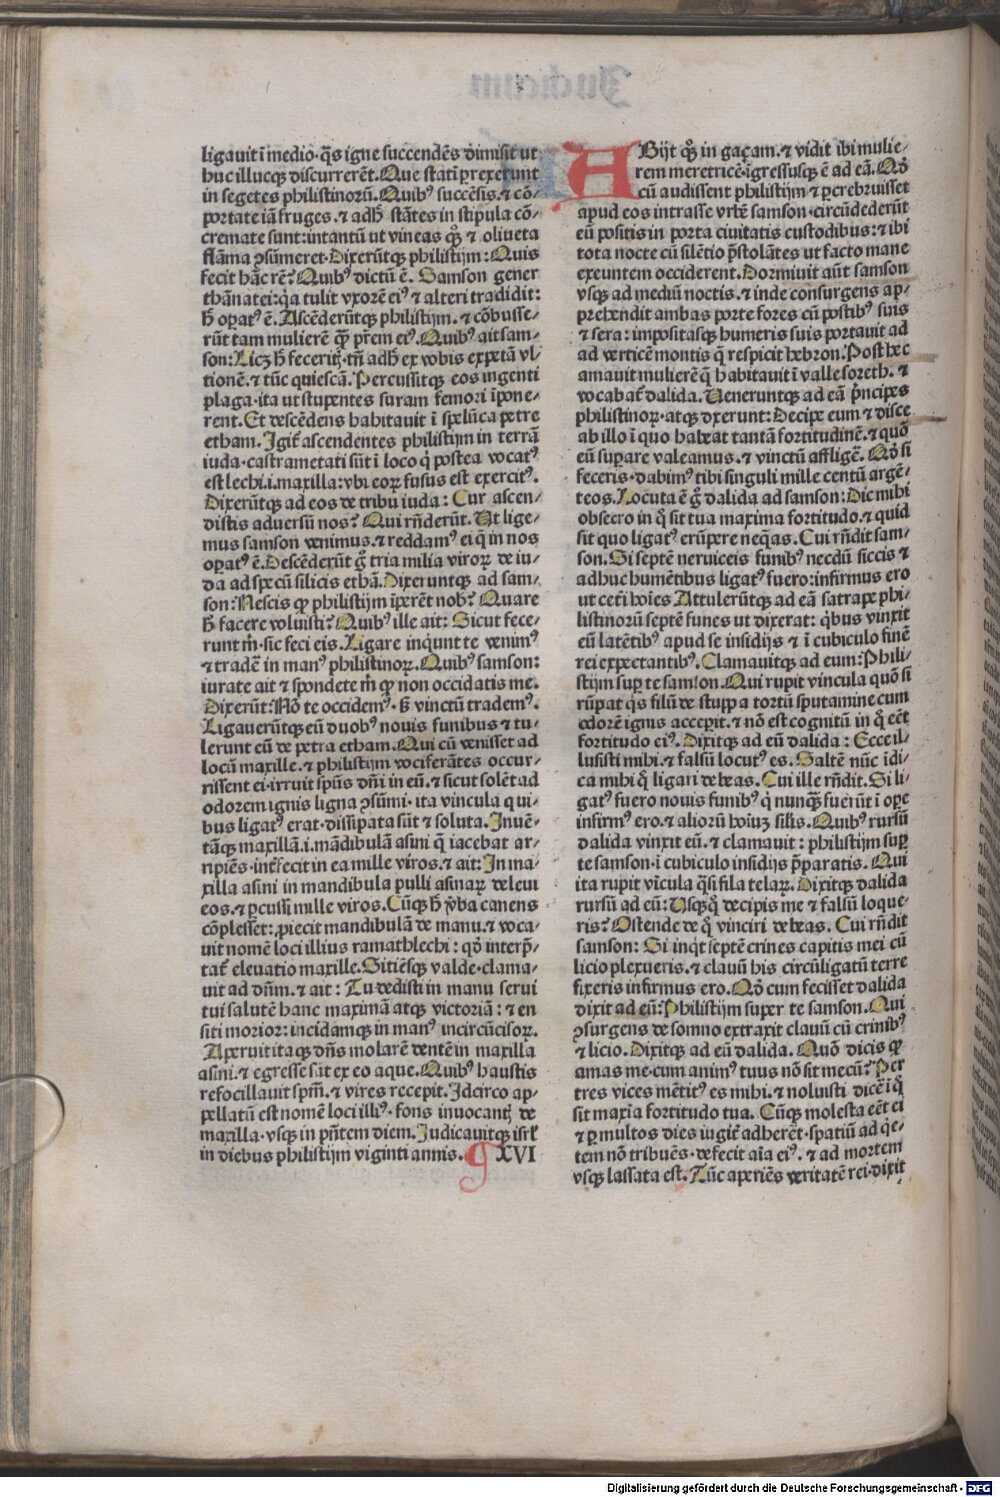 ligauit ī medio·q̄s igne succendēs dimisit ut
huc illucqꝫ discurrerēt. Que stati prexerunt
in segetes philistinorū. Quibꝰ succēsis.⁊ cō-
portate iā fruges.⁊ adhˀ stātes in stipula cō-
cremate sunt:intantū ut vineas qꝫ ⁊ oliueta
flāma ꝯsūmeret. Dixerūtqꝫ philistijm: Quis
fecit hāc rē? Quibꝰ dictū ē. Samson gener
thānatei: qa tulit vxorē eiꝰ ⁊ alteri tradidit:
h̄ opatꝰ ē. Ascēderūtqꝫ philistijm.⁊ cōbusse-
rūt tam mulierē qꝫ prēm eiꝰ. Quibꝰ ait sam-
son: Licꝫ h̄ feceritꝭ. tn̄ adhˀ ex vobis expetā vl-
tionē.⁊ tūc quiescā. Percussitqꝫ eos ingenti
plaga·ita ut stupentes suram femori īpone-
rent. Et descēdens habitauit ī spelūca petre
etham. Igitˀ ascendentes philistijm in terrā
iuda·castrametati sūt ī loco q̇ postea vocatꝰ
est lechi.i.maxilla: vbi eoꝝ fusus est exercitꝰ.
Dixerūtqꝫ ad eos de tribu iuda: Cur ascen-
distis aduersū nos? Qui rn̄derūt. Ut lige-
mus samson venimus.⁊ reddamꝰ ei q̄ in nos
opatꝰ ē. Descēderūt g̊ tria milia viroꝝ de iu-
da ad specū silicis ethā. Dixeruntqꝫ ad sam-
son: Nescis ꝙ philistijm īperēt nobˀ? Quare
h̄ facere voluisti? Quibꝰ ille ait: Sicut fece-
runt m̄·sic feci eis. Ligare inqunt te venimꝰ
⁊ tradē in manꝰ philistinoꝝ. Quibꝰ samson:
iurate ait ⁊ spondete m̄ ꝙ non occidatis me.
Dixerūt: Nō te occidemꝰ·sꝫ vinctū trademꝰ.
Ligauerūtqꝫ eū duobꝰ nouis funibus ⁊ tu-
lerunt eū de petra etham. Qui cū venisset ad
locū maxille.⁊ philistijm vociferātes occur-
rissent ei·irruit spūs dn̄i in eū.⁊ sicut solēt ad
odorem ignis ligna ꝯsūmi·ita vincula qui-
bus ligatꝰ erat·dissipata sūt ⁊ soluta. Inuē-
tāqꝫ maxillā.i.mādibulā asini q̄ iacebat ar-
ripiēs·intˀfecit in ea mille viros.⁊ ait: In ma-
xilla asini in mandibula pulli asinaꝝ deleui
eos.⁊ pcussi mille viros. Cūqꝫ h̄ v̄ba canens
cōplesset: ꝓiecit mandibulā de manu.⁊ voca-
uit nomē loci illius ramathlechi: qd̊ interp̄-
tatˀ eleuatio maxille. Sitiēsqꝫ valde·clama-
uit ad dn̄m.⁊ ait: Tu dedisti in manu serui
tui salutē hanc maximā atqꝫ victoriā: ⁊ en
siti morior: incidamqꝫ in manꝰ incircūcisoꝝ.
Aperuit itaqꝫ dn̄s molarē dentē in maxilla
asini.⁊ egresse sūt ex eo aque. Quibꝰ haustis
refocillauit spm̄.⁊ vires recepit. Idcirco ap-
pellatū est nomē loci illiꝰ· fons inuocantꝭ de
maxilla·vsqꝫ in pn̄tem diem. Iudicauitqꝫ isrl̄
in diebus philistijm viginti annis. XVI
ABijt qꝫ in gaçam.⁊ vidit ibi mulie-
rem meretricē·īgressusqꝫ ē ad eā. Qd̊
cū audissent philistijm ⁊ percrebruisset
apud eos intrasse vrbē samson·circūdederūt
eū positis in porta ciuitatis custodibus: ⁊ ibi
tota nocte cū silētio p̄stolātes ut facto mane
exeuntem occiderent. Dormiuit aūt samson
vsqꝫ ad mediū noctis.⁊ inde consurgens ap-
prehendit ambas porte fores cū postibꝰ suis
⁊ sera: impositasqꝫ humeris suis portauit ad
ad verticē montis q̄ respicit hebron. Post hec
amauit mulierē q̄ habitauit ī valle soreth.⁊
vocabatˀ dalida. Ueneruntqꝫ ad eā prīncipes
philistinoꝝ·atqꝫ dxerunt: Decipe eum ⁊ disce
ab illo ī quo habeat tantā fortitudinē.⁊ quō
eū supare valeamus.⁊ vinctū affligē. Qd̊ si
feceris·dabimꝰ tibi singuli mille centū argē-
teos. Locuta ē g̊ dalida ad samson: Dic mihi
obsecro in q̊ sit tua maxima fortitudo.⁊ quid
sit quo ligatꝰ erūpere neq̄as. Cui rn̄dit sam-
son. Si septē neruiceis funibꝰ necdū siccis ⁊
adhuc humētibus ligatꝰ fuero: infirmus ero
ut ceti hoīes Attulerūtqꝫ ad eā satrape phi-
listinorū septē funes ut dixerat: q̇bus vinxit
eū latētibꝰ apud se insidijs ⁊ ī cubiculo finē
rei expectantibꝰ. Clamauitqꝫ ad eum: Phili-
stijm sup te samson. Qui rupit vincula quō si
rūpat qs filū de stuppa tortū sputamine cum
odorē ignis acceperit.⁊ nō est cognitū in q̊ eēt
fortitudo eiꝰ. Dixitqꝫ ad eū dalida: Ecce il-
lusisti mihi.⁊ falsū locutꝰ es. Saltē nūc īdi-
ca mihi q̊ ligari debeas. Cui ille rn̄dit. Si li-
gatꝰ fuero nouis funibꝰ q̇ nunqꝫ fuerūt ī ope
infirmꝰ ero.⁊ alioꝝ hoīuꝫ silis. Quibꝰ rursū
dalida vinxit eū.⁊ clamauit: philistijm sup
te samson·ī cubiculo insidijs p̄paratis. Qui
ita rupit vīcula q̄si fila telaꝝ. Dixitqꝫ dalida
rursū ad eū: Usqꝫq̊ decipis me ⁊ falsū loque-
ris? Ostende de q̊ vinciri debeas. Cui rn̄dit
samson: Si inqt septē crines capitis mei cū
licio plexueris.⁊ clauū his circūligatū terre
fixeris infirmus ero. Qd̊ cum fecisset dalida
dixit ad eū: Philistijm super te samson. Qui
ꝯsurgens de somno extraxit clauū cū crinibꝰ
⁊ licio. Dixitqꝫ ad eū dalida. Quō dicis ꝙ
amas me·cum animꝰ tuus nō sit mecū? Per
tres vices mētitꝰ es mihi.⁊ noluisti dicē ī q̊
sit maxīa fortitudo tua. Cūqꝫ molesta eēt ei
⁊ per multos dies iugitˀ adherēt·spatiū ad qe-
tem nō tribuēs·defecit aīa eiꝰ.⁊ ad mortem
vsqꝫ lassata est. Tūc aperiēs veritatē rei·dixit
Digitalisierung gefördert durch die Deutsche Forschungsgemeinschaft - DFG